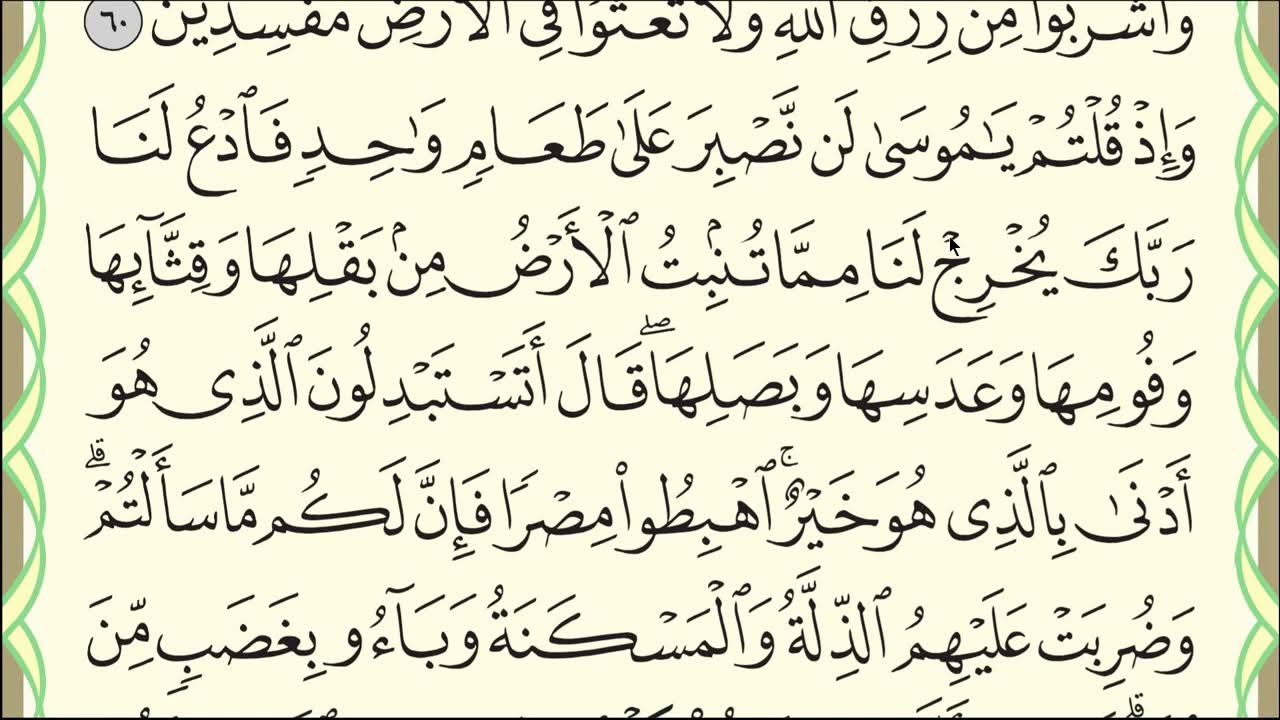 وَاشْرَبُوا مِن رِّزْقِ اللَّهِ وَلَا تَعْثَوْا فِي الْأَرْضِ مُفْسِدِينَ ٦٠
وَإِذْ قُلْتُمْ يَٰمُوسَىٰ لَن نَّصْبِرَ عَلَىٰ طَعَامٍ وَٰحِدٍ فَٱدْعُ لَنَا
رَبَّكَ يُخْرِجْ لَنَا مِمَّا تُنۢبِتُ ٱلْأَرْضُ مِنۢ بَقْلِهَا وَقِثَّآئِهَا
وَفُومِهَا وَعَدَسِهَا وَبَصَلِهَا ۖ قَالَ أَتَسْتَبْدِلُونَ ٱلَّذِى هُوَ
أَدْنَىٰ بِٱلَّذِى هُوَ خَيْرٌ ۚ ٱهْبِطُوا۟ مِصْرًا فَإِنَّ لَكُم مَّا سَأَلْتُمْ ۗ
وَضُرِبَتْ عَلَيْهِمُ ٱلذِّلَّةُ وَٱلْمَسْكَنَةُ وَبَآءُو بِغَضَبٍ مِّنَ